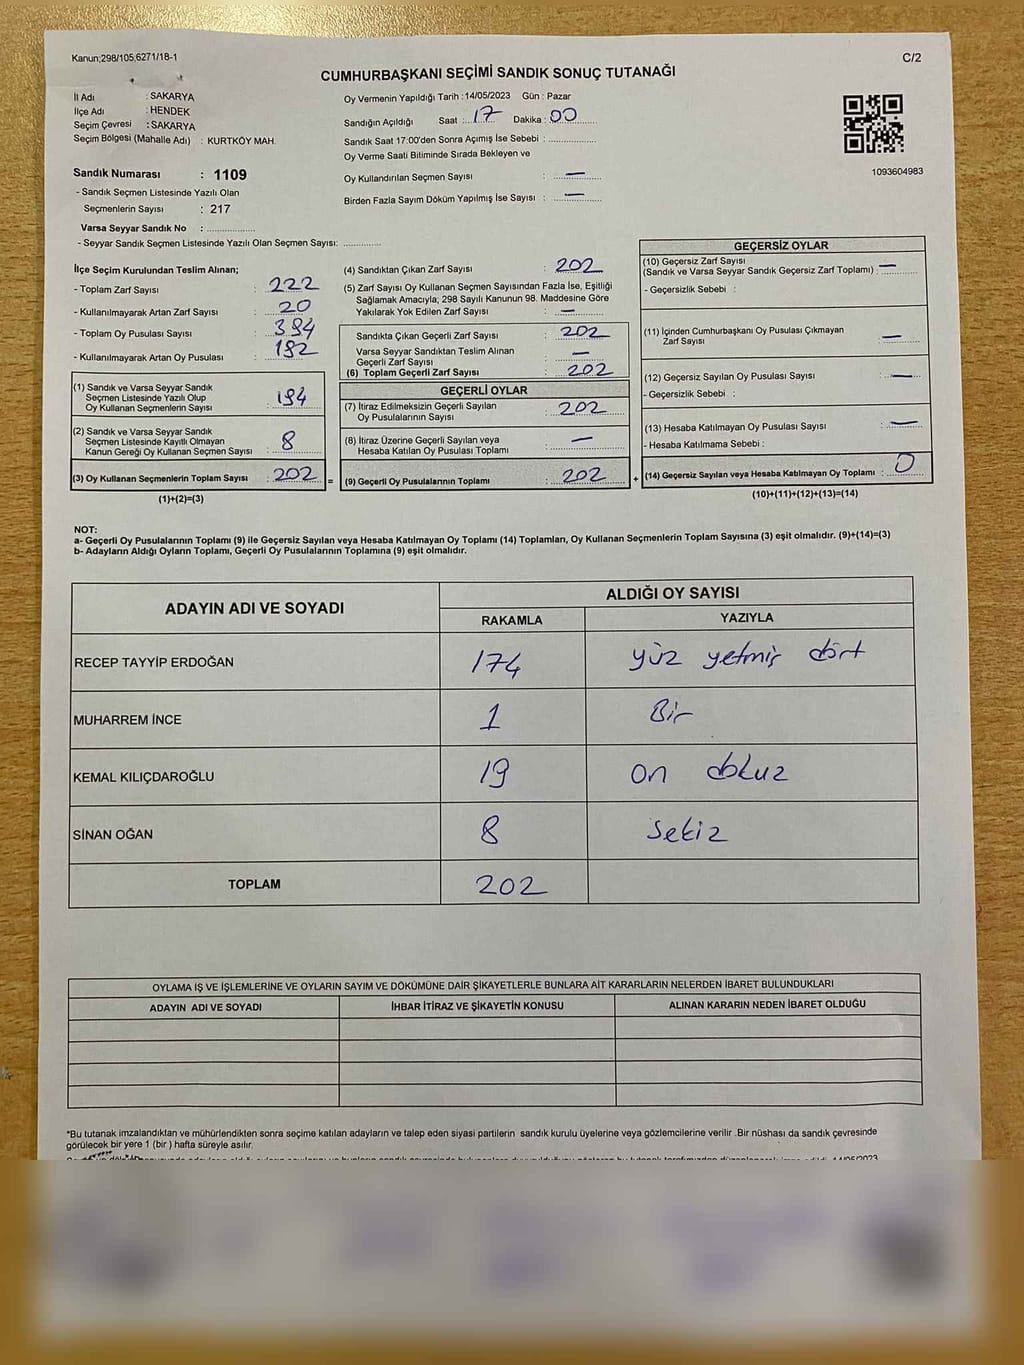 Kanun;298/105,6271/18-1
C/2
CUMHURBAŞKANI SEÇİMİ SANDIK SONUÇ TUTANAĞI
İl Adı : SAKARYA
İlçe Adı : HENDEK
Seçim Çevresi : SAKARYA
Seçim Bölgesi (Mahalle Adı) : KURTKÖY MAH.
Sandık Numarası : 1109
- Sandık Seçmen Listesinde Yazılı Olan
Seçmenlerin Sayısı : 217
Varsa Seyyar Sandık No : ................
- Seyyar Sandık Seçmen Listesinde Yazılı Olan Seçmen Sayısı: .............
Oy Vermenin Yapıldığı Tarih :14/05/2023 Gün : Pazar
Sandığın Açıldığı Saat : 17 Dakika : 00
Sandık Saat 17:00'den Sonra Açımış İse Sebebi : ................
Oy Verme Saati Bitiminde Sırada Bekleyen ve
Oy Kullandırılan Seçmen Sayısı : —
Birden Fazla Sayım Döküm Yapılmış İse Sayısı : —
1093604983
İlçe Seçim Kurulundan Teslim Alınan;
- Toplam Zarf Sayısı : 222
- Kullanılmayarak Artan Zarf Sayısı : 20
- Toplam Oy Pusulası Sayısı : 394
- Kullanılmayarak Artan Oy Pusulası : 192
(1) Sandık ve Varsa Seyyar Sandık
Seçmen Listesinde Yazılı Olup
Oy Kullanan Seçmenlerin Sayısı : 194
(2) Sandık ve Varsa Seyyar Sandık
Seçmen Listesinde Kayıtlı Olmayan
Kanun Gereği Oy Kullanan Seçmen Sayısı : 8
(3) Oy Kullanan Seçmenlerin Toplam Sayısı : 202 =
(1)+(2)=(3)
(4) Sandıktan Çıkan Zarf Sayısı : 202
(5) Zarf Sayısı Oy Kullanan Seçmen Sayısından Fazla İse, Eşitliği
Sağlamak Amacıyla, 298 Sayılı Kanunun 98. Maddesine Göre
Yakılarak Yok Edilen Zarf Sayısı : —
Sandıkta Çıkan Geçerli Zarf Sayısı : 202
Varsa Seyyar Sandıktan Teslim Alınan
Geçerli Zarf Sayısı : —
(6) Toplam Geçerli Zarf Sayısı : 202
GEÇERLİ OYLAR
(7) İtiraz Edilmeksizin Geçerli Sayılan
Oy Pusulalarının Sayısı : 202
(8) İtiraz Üzerine Geçerli Sayılan veya
Hesaba Katılan Oy Pusulası Toplamı : —
(9) Geçerli Oy Pusulalarının Toplamı : 202 +
GEÇERSİZ OYLAR
(10) Geçersiz Zarf Sayısı
(Sandık ve Varsa Seyyar Sandık Geçersiz Zarf Toplamı) : —
- Geçersizlik Sebebi :
(11) İçinden Cumhurbaşkanı Oy Pusulası Çıkmayan
Zarf Sayısı : —
(12) Geçersiz Sayılan Oy Pusulası Sayısı : —
- Geçersizlik Sebebi :
(13) Hesaba Katılmayan Oy Pusulası Sayısı : —
- Hesaba Katılmama Sebebi :
(14) Geçersiz Sayılan veya Hesaba Katılmayan Oy Toplamı : 0
(10)+(11)+(12)+(13)=(14)
NOT:
a- Geçerli Oy Pusulalarının Toplamı (9) ile Geçersiz Sayılan veya Hesaba Katılmayan Oy Toplamı (14) Toplamları, Oy Kullanan Seçmenlerin Toplam Sayısına (3) eşit olmalıdır. (9)+(14)=(3)
b- Adayların Aldığı Oyların Toplamı, Geçerli Oy Pusulalarının Toplamına (9) eşit olmalıdır.
ADAYIN ADI VE SOYADI
ALDIĞI OY SAYISI
RAKAMLA YAZIYLA
RECEP TAYYİP ERDOĞAN 174 yüz yetmiş dört
MUHARREM İNCE 1 Bir
KEMAL KILIÇDAROĞLU 19 on dokuz
SİNAN OĞAN 8 Sekiz
TOPLAM 202
OYLAMA İŞ VE İŞLEMLERİNE VE OYLARIN SAYIM VE DÖKÜMÜNE DAİR ŞİKAYETLERLE BUNLARA AİT KARARLARIN NELERDEN İBARET BULUNDUKLARI
ADAYIN ADI VE SOYADI İHBAR İTİRAZ VE ŞİKAYETİN KONUSU ALINAN KARARIN NEDEN İBARET OLDUĞU
*Bu tutanak imzalandıktan ve mühürlendikten sonra seçime katılan adayların ve talep eden siyasi partilerin sandık kurulu üyelerine veya gözlemcilerine verilir .Bir nüshası da sandık çevresinde
görülecek bir yere 1 (bir ) hafta süreyle asılır.